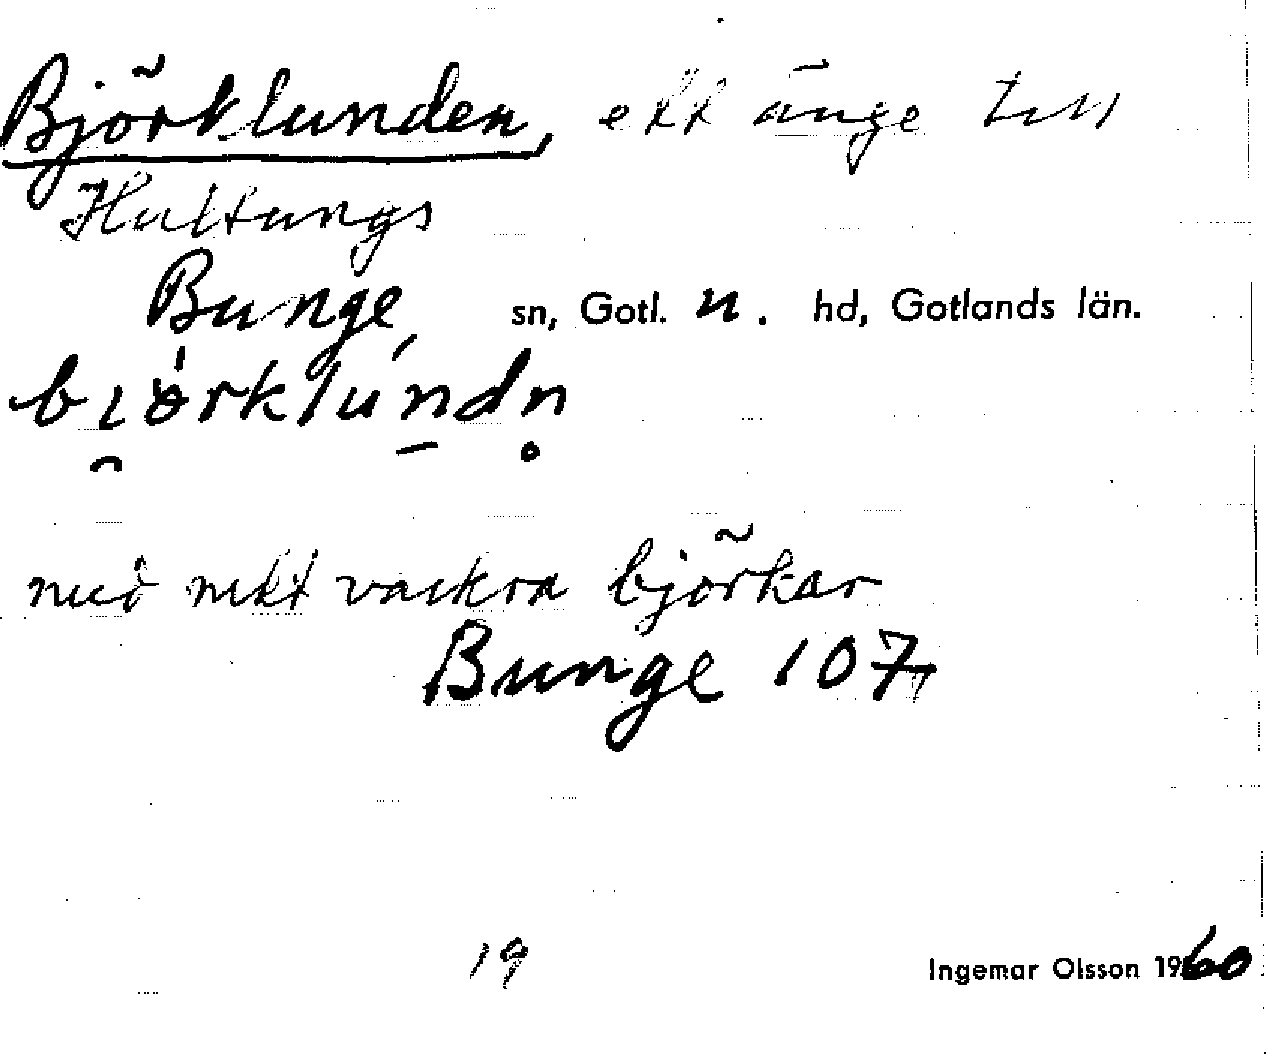 Björklunden, ett änge till
Hultungs
Bunge sn, Gotl. n. hd, Gotlands län.
bi̯ö́rklúnd̥n
med mkt vackra björkar
Bunge 107
19
Ingemar Olsson 1960